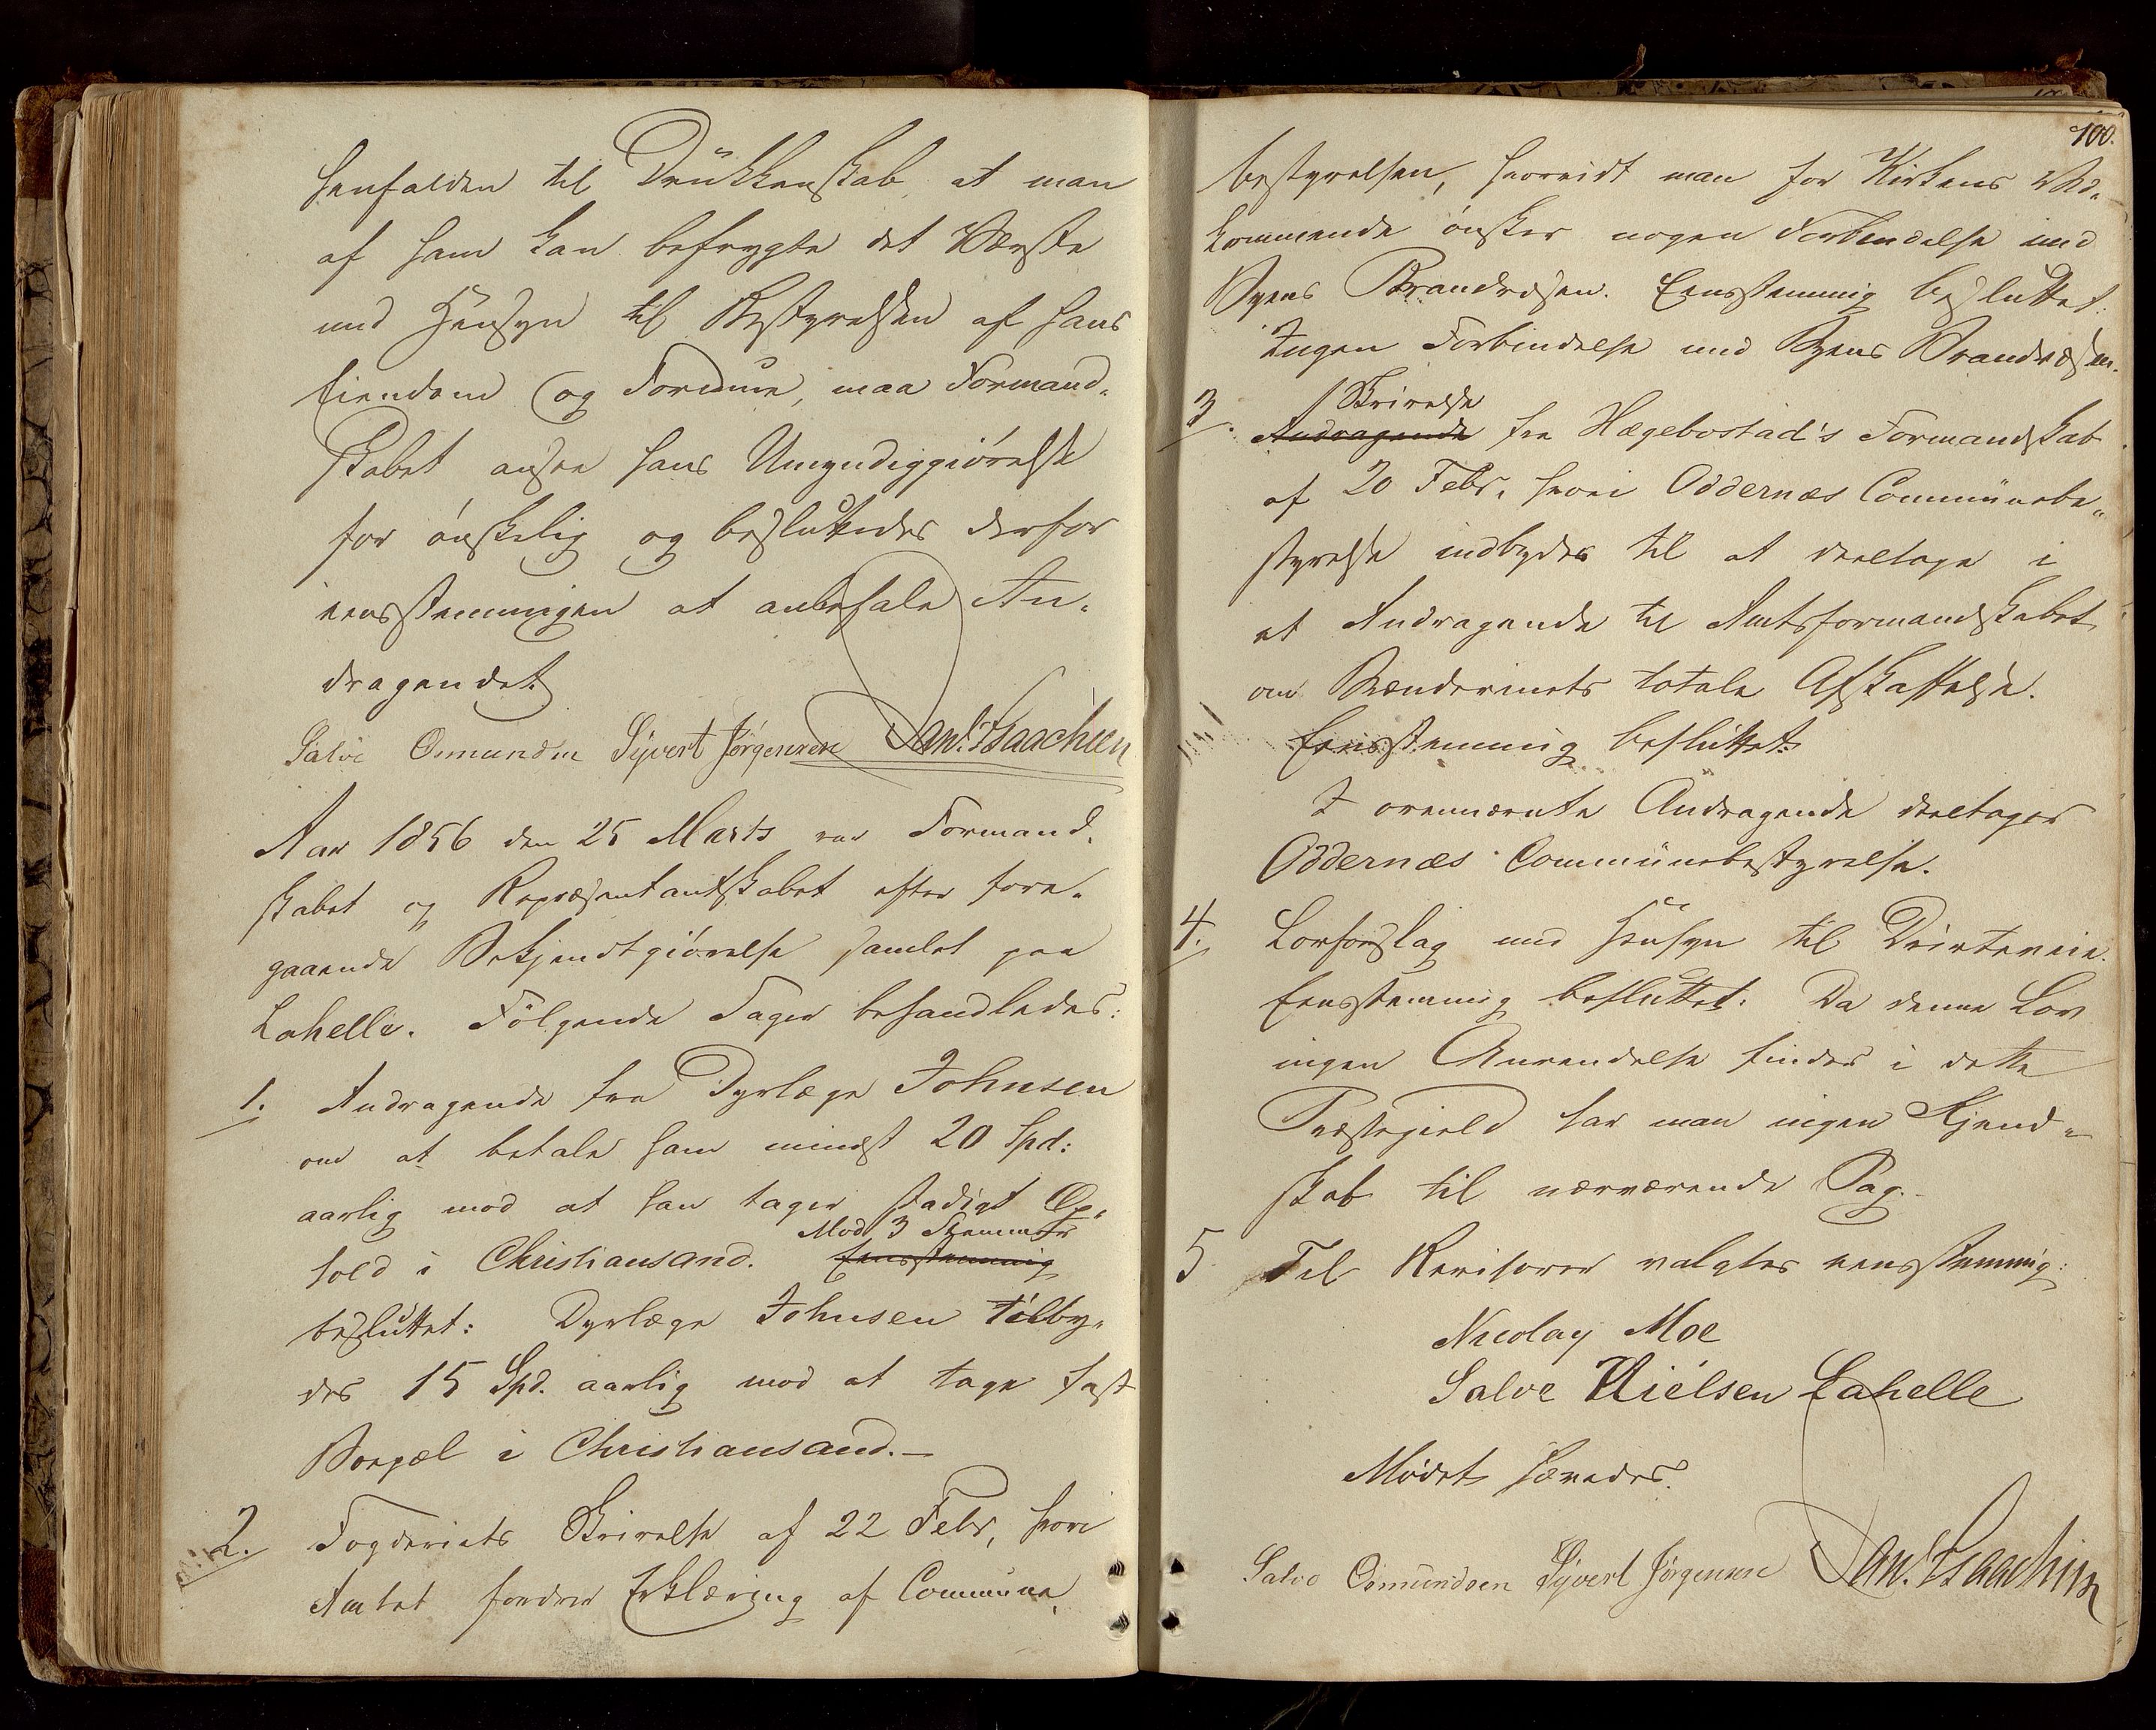 henfalden til Drukkenskab, at man
af ham kan befrygte det Værste
med Hensyn til Bestyrelsen af hans
Eiendom og Formue, maa Formand-
skabet ansee hans Umyndiggjörelse
for önskelig og besluttedes derfor
eensstemmigen at anbefale An-
dragendet.
Salve Osmundsen Syvert Jørgensen Dan. Isaachsen
Aar 1856 den 25 Marts var Formand-
skabet og Repræsentantskabet efter fore-
gaaende Bekjendtgjörelse samlet paa
Lahelle. Fölgende Sager behandledes:
1. Andragende fra Dyrlæge Johnsen
om at betale ham mindst 20 Spd:
aarlig mod at han tager stadigt Op-
Mod 3 Stemmer
hold i Christiansand. Eensstemmig
besluttet: Dyrlæge Johnsen tilby-
des 15 Spd. aarlig mod at tage fast
Boepæl i Christiansand.—
2. Fogderiets Skrivelse af 22 Febr, hvori
Amtet fordrer Erklæring af Commune
100.
bestyrelsen, hvorvidt man for Kirkens Ved-
kommende önsker nogen Forbindelse med
Byens Brandvæsen. Eensstemmig besluttet:
Ingen Forbindelse med Byens Brandvæsen.
Skrivelse
3. Andragende fra Hægebostad's Formandskab
af 20 Febr. hvori Oddernæs Communebe-
styrelse indbydes til at deeltage i
et Andragende til Amtsformandskabet
om Brændevinets totale Afskaffelse.
Eensstemmig besluttet:
I ovennævnte Andragende deeltager
Oddernæs Communebestyrelse.
4. Lovforslag med Hensyn til Drivteveie.
Eensstemmig besluttet: Da denne Lov
ingen Anvendelse finder i dette
Præstegield har man ingen Kjend-
skab til nærværende Sag.-
5 Til Revisorer valgtes eensstemmig:
Nicolay Moe
Salve Nielsen Lahelle
Mødet hævedes.
Salve Osmundsen Syvert Jørgensen Dan. Isaachsen